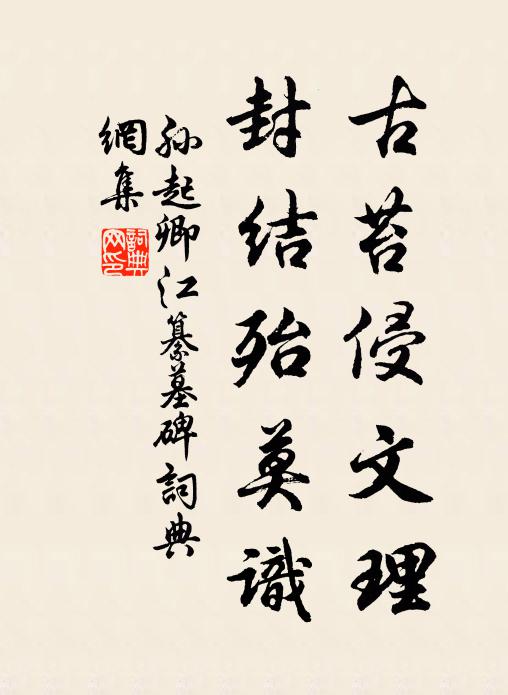 古苔侵文理
封结殆莫識
孙起卿江纂墓碑詞典
網集
詞典
网印